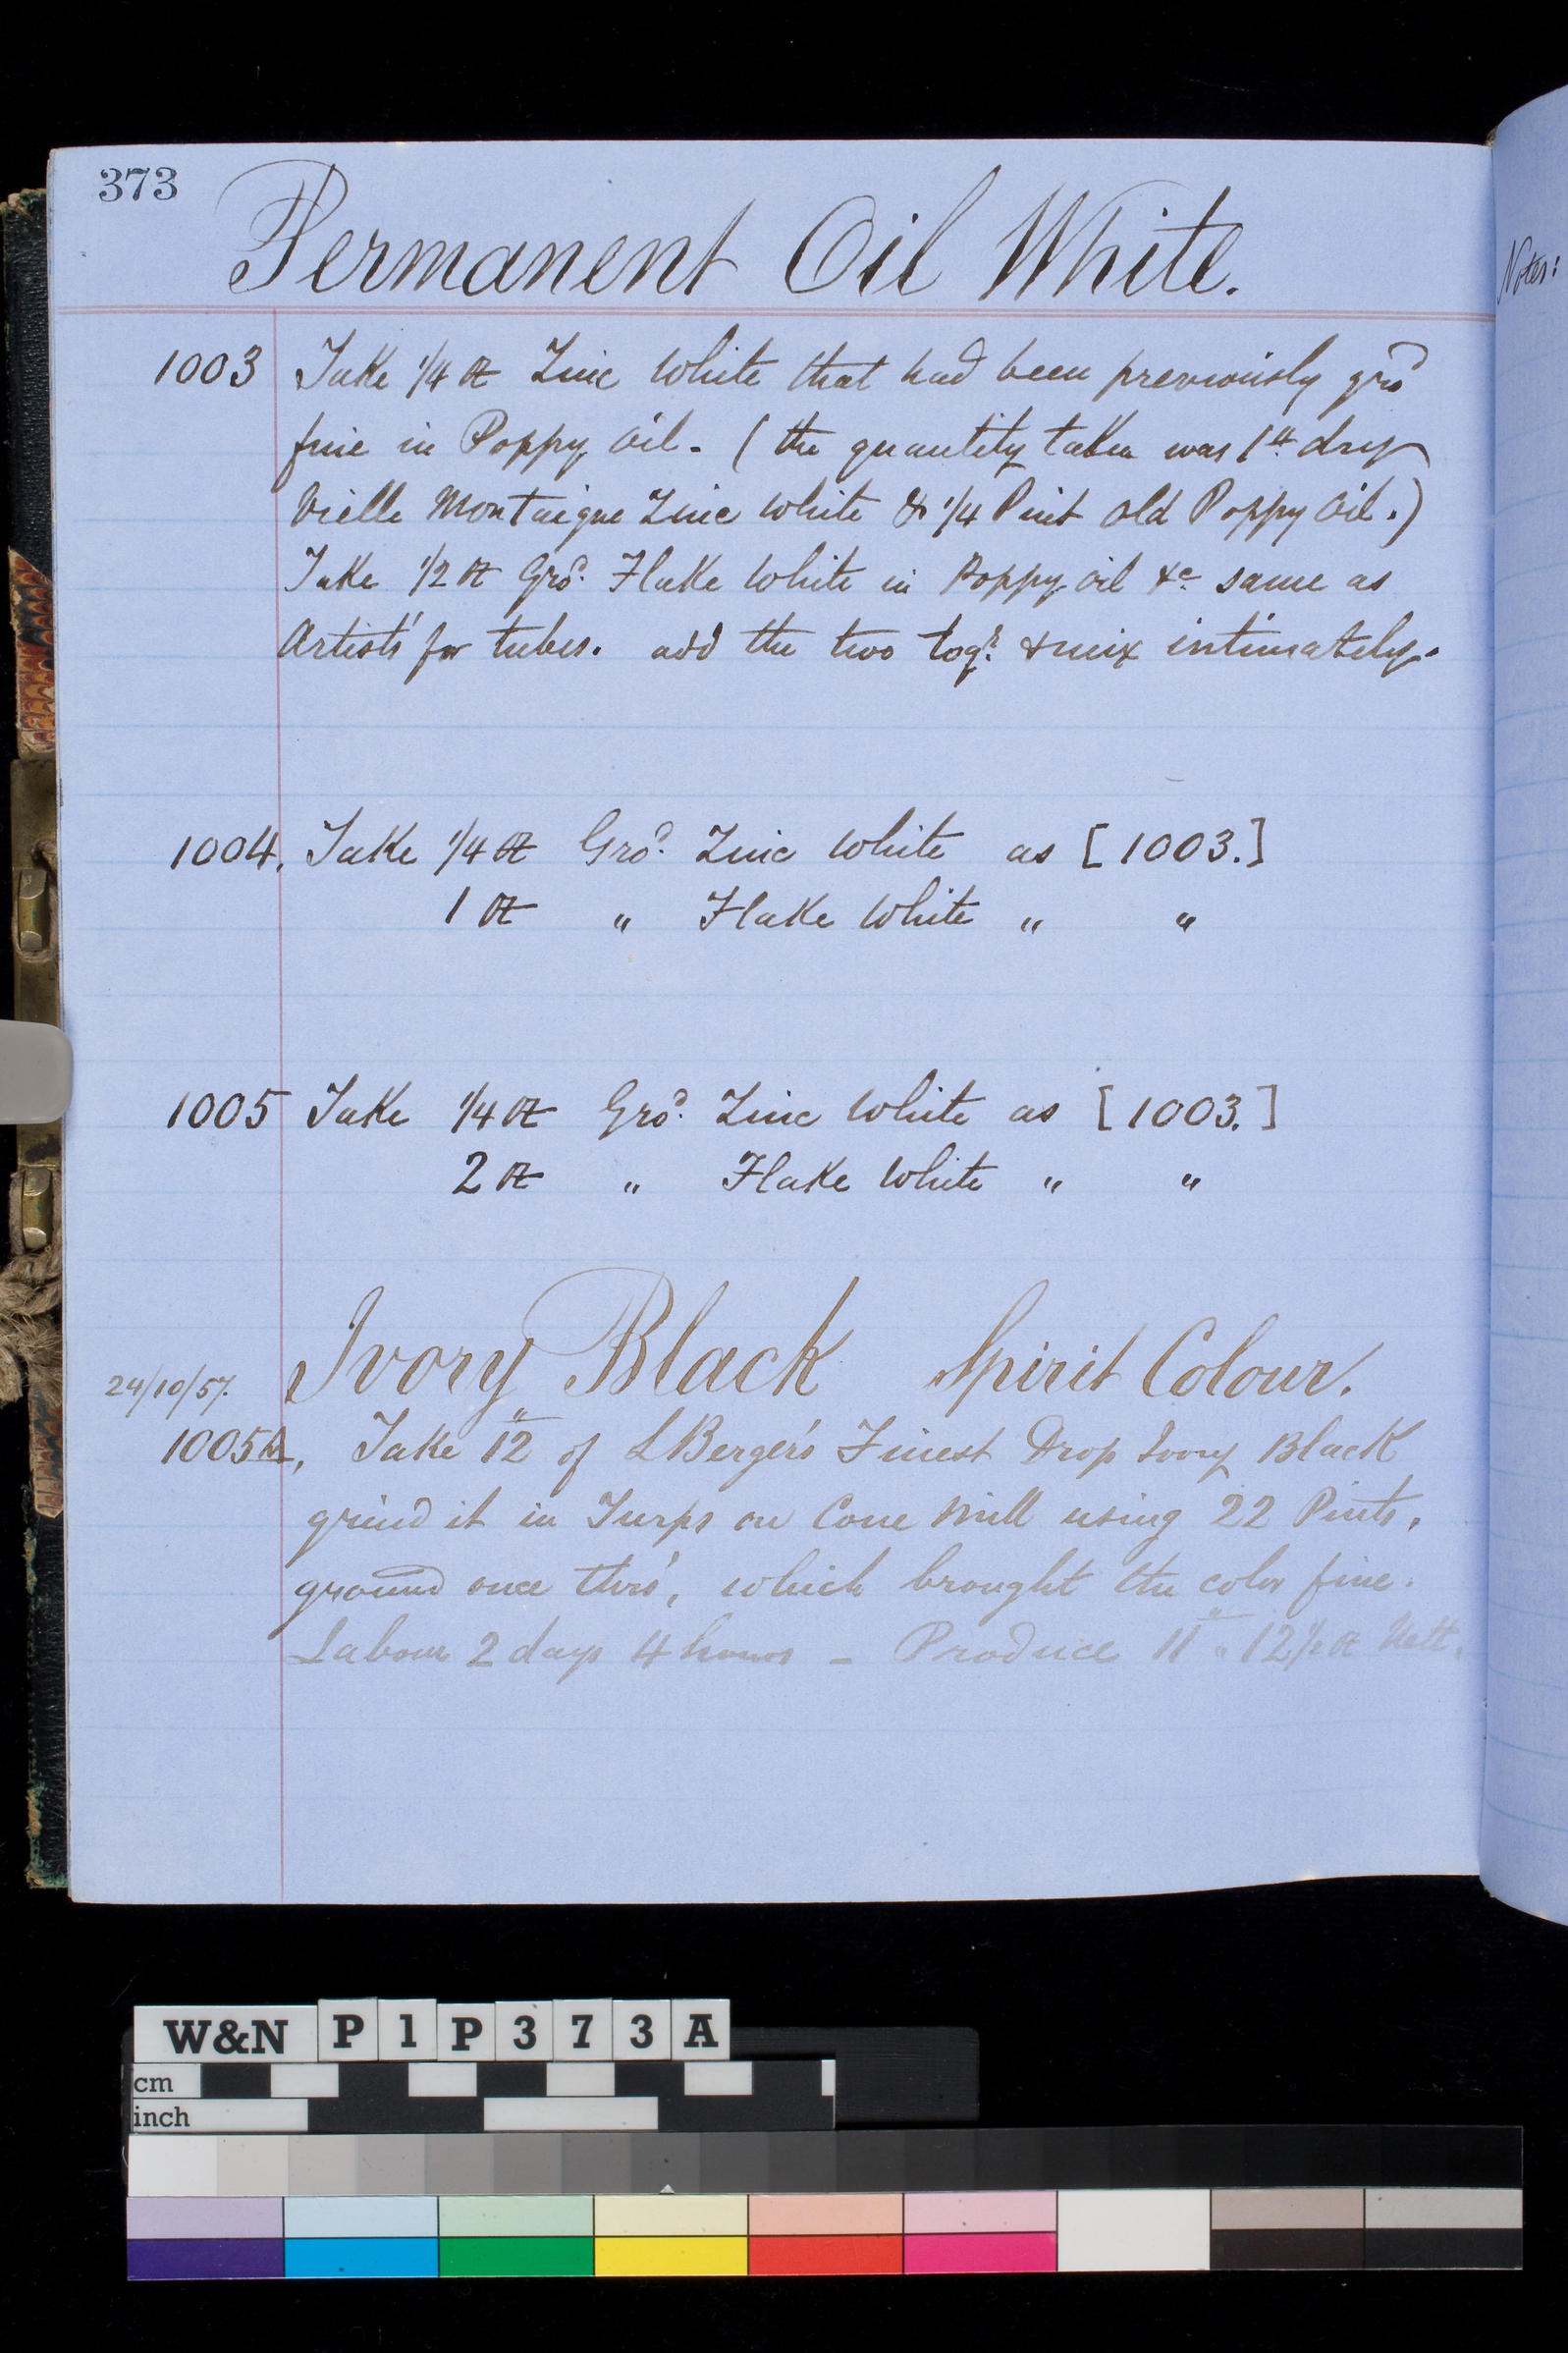 373
Permanent Oil White.
Notes:
1003 Take 1/4 ℔ Zinc White that had been previously grd
fine in Poppy Oil. (the quantity taken was 1 ℔ dry
Vielle Montaigne Zinc White & 1/4 Pint old Poppy Oil.)
Take 1/2 ℔ Grd. Flake White in Poppy oil &c same as
Artists' for tubes. add the two togr. & mix intimately.
1004. Take 1/4 ℔ Grd. Zinc White as [1003.]
1 ℔ " Flake White " "
1005 Take 1/4 ℔ Grd. Zinc White as [1003.]
2 ℔ " Flake White " "
Ivory Black Spirit Colour.
24/10/57.
1005A, Take 12 ℔ of L Berger's Finest Drop Ivory Black
grind it in Turps on Cone Mill using 22 Pints,
ground once thro', which brought the color fine.
Labour 2 days 4 hours - Produce 11 ℔ " 12 1/2 Nett.
W&N P1P373A
cm
inch